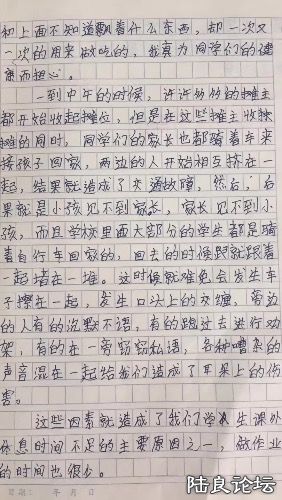 和上面不知道飘着什么东西，却一次又
一次的用来做吃的，我真为同学们的健
康而担心。
一到中午的时候，许许多多的摊主
都开始收起摊位，但是在这些摊主收摊
的同时，同学们的家长也都骑着车来
接孩子回家，两边的人开始相互挤在一
起，结果就造成了交通故障，然后，后
果就是小孩见不到家长，家长见不到小
孩，而且学校里面大部分的学生都是骑
着自行车回家的，回去的时候跟就跟着
一起堵在一堆。这时候就难免会发生车
子摞在一起，发生口头上的交缠，旁边
的人有的沉默不语，有的跑过去进行劝
架，有的在一旁窃窃私语，各种嘈杂的
声音混在一起给我们造成了耳朵上的伤
害。
这些因素就造成了我们学生课外
休息时间不足的主要原因之一，做作业
的时间也很少。
日期： 年 月 日
陆良论坛